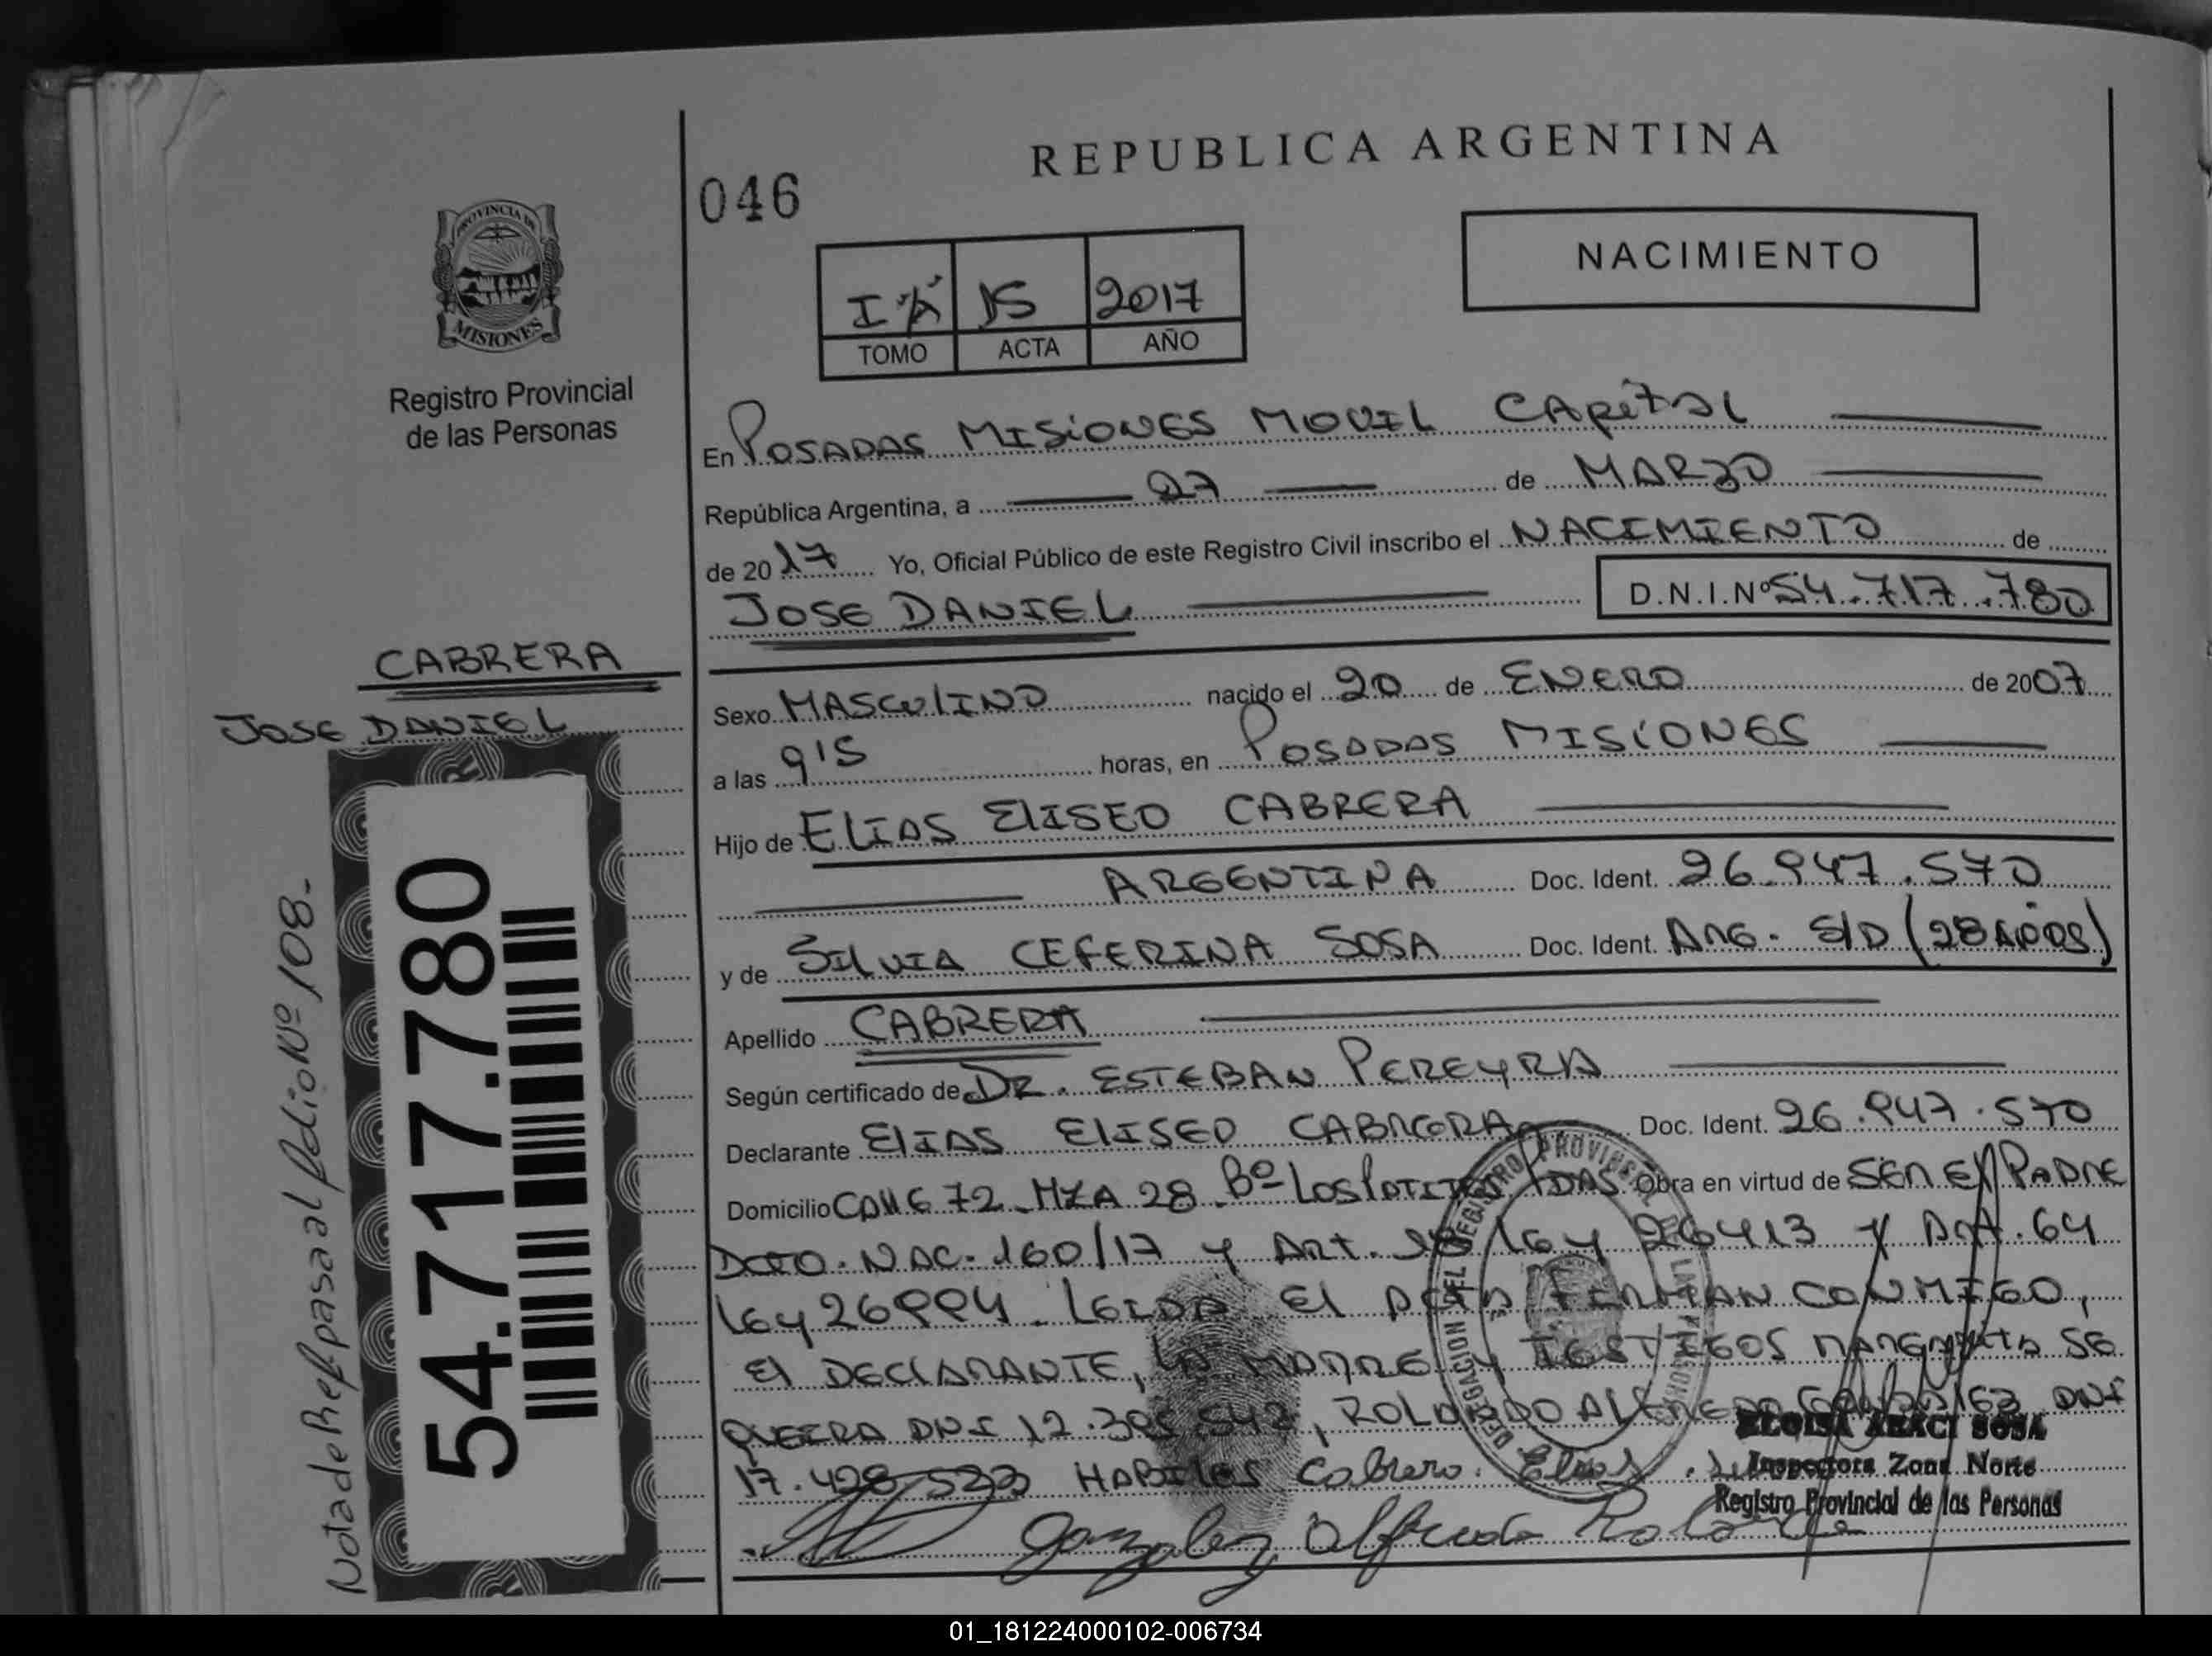 REPUBLICA ARGENTINA
046
NACIMIENTO
PROVINCIA DE
MISIONES
Registro Provincial
de las Personas
15 2017
TOMO ACTA AÑO
En POSADAS MISIONES MOVIL CAPITAL
República Argentina, a 27 de MARZO
de 2017 Yo, Oficial Público de este Registro Civil inscribo el NACIMIENTO de
JOSE DANIEL D.N.I.Nº 54.717.780
CABRERA
JOSE DANIEL
Sexo MASCULINO nacido el 20 de ENERO de 2007
a las 9'15 horas, en POSADAS MISIONES
Hijo de ELIAS ELISEO CABRERA
ARGENTINA Doc. Ident. 26.947.570
y de SILVIA CEFERINA SOSA Doc. Ident. ARG. S/D (28 AÑOS)
Apellido CABRERA
Según certificado de DR. ESTEBAN PEREYRA
Declarante ELIAS ELISEO CABRERA Doc. Ident. 26.947.570
Domicilio CALLE 72 MZA 28 Bº LOS PDAS Obra en virtud de SER EL PADRE
DCTO. NAC. 160/17 y ART. 28 LEY 26413 Y ART. 64
LEY 26994. LEIDA EL ACTA FIRMAN CONMIGO,
EL DECLARANTE, LA MADRE Y TESTIGOS MARGARITA SE
QUEIRA DNI 12.395.542, ROLANDO ALFREDO GONZALEZ DNI
17.428.533 HABILES Cabrera Elias
Gonzalez Alfredo Rolando
ELOISA ARACI SOSA
Inspectora Zona Norte
Registro Provincial de las Personas
DELEGACION DEL REGISTRO PROVINCIAL DE LAS PERSONAS
Nota de Ref. pasa al folio Nº 108.-
54.717.780
01_181224000102-006734